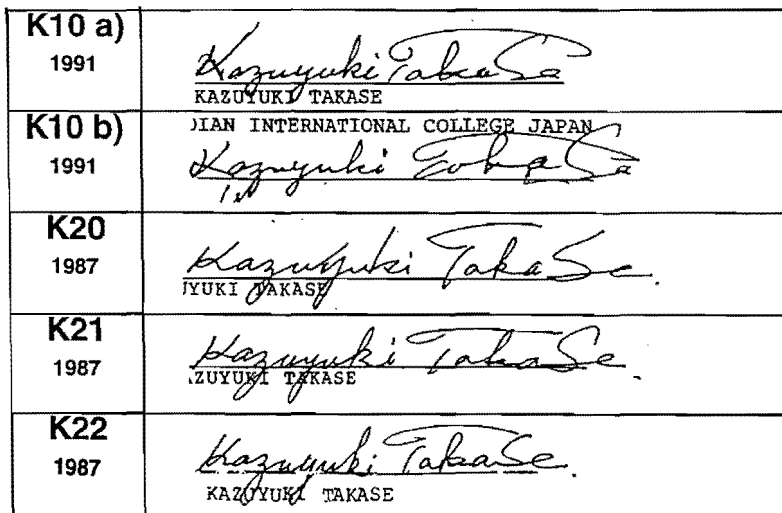 K10 a)
1991
Kazuyuki TakaSe
KAZUYUKI TAKASE
K10 b)
1991
)IAN INTERNATIONAL COLLEGE JAPAN
Kazuyuki TakaSe
K20
1987
Kazuyuki TakaSe.
JYUKI TAKASE
K21
1987
Kazuyuki TakaSe.
.ZUYUKI TAKASE
K22
1987
Kazuyuki TakaSe.
KAZUYUKI TAKASE